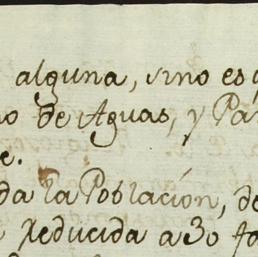 alguna, sino es q
o de Aguas, y Pa
e.
da la Población, de
reducida a 30 fa